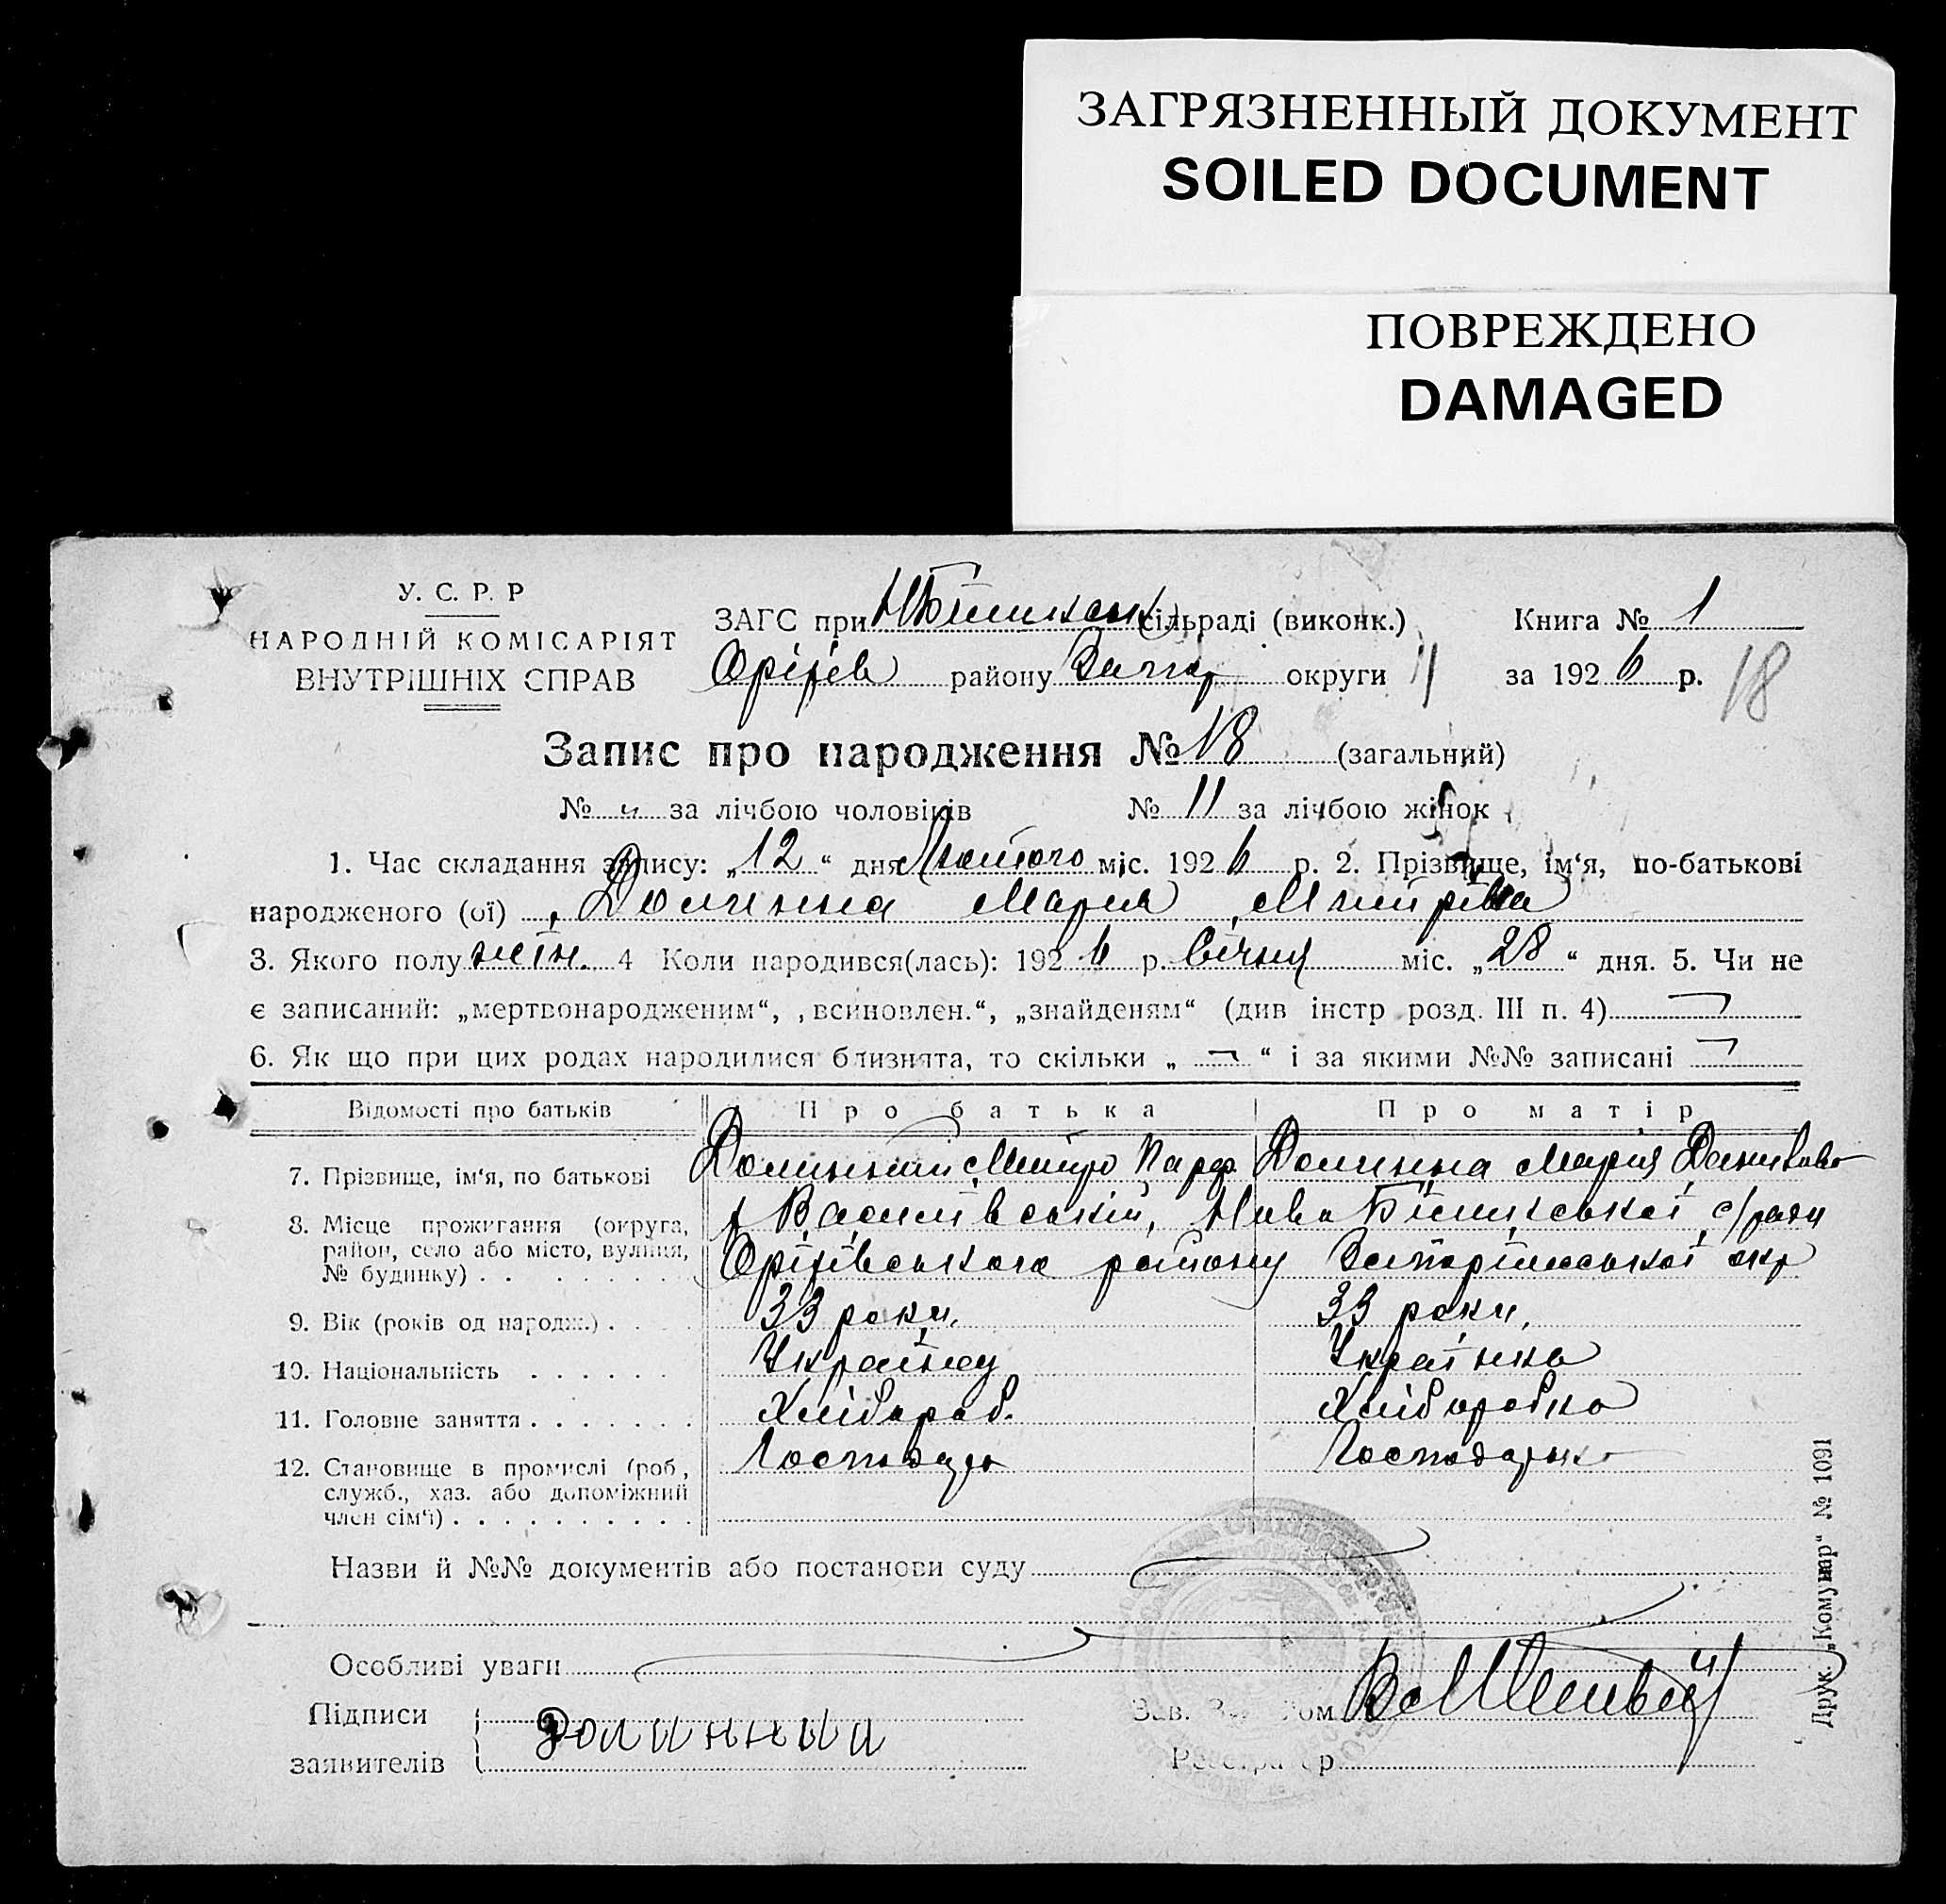 ЗАГРЯЗНЕННЫЙ ДОКУМЕНТ
SOILED DOCUMENT
ПОВРЕЖДЕНО
DAMAGED
У. С. Р. Р
НАРОДНІЙ КОМІСАРІЯТ
ВНУТРІШНІХ СПРАВ
ЗАГС при сільраді (виконк.) Книга № 1
Оріхів району Запор округи за 192 6 р. 18
Запис про народження № 18 (загальний)
№ " за лічбою чоловіків № 11 за лічбою жінок
1. Час складання запису: „ 12 “ дня Лютого міс. 192 6 р. 2. Прізвище, ім‘я, по-батькові
народженого (ої) Долинна Мария Митрівна
3. Якого полу жін. 4 Коли народився(лась): 192 6 р. Січня міс. „ 28 “ дня. 5. Чи не
є записаний: „мертвонародженим“, „всиновлен.“, „знайденям“ (див інстр розд. III п. 4)
6. Як що при цих родах народилися близнята, то скільки „ — “ і за якими №№ записані —
Відомості про батьків Про батька Про матір
7. Прізвище, ім‘я, по батькові Долинний Митро Парф. Долинна Мария Данилова
8. Місце проживання (округа, х Василівський, Ново Білицької с/ради
район, село або місто, вулиця, Оріхівського району Запоріжської окр
№ будинку)
9. Вік (років од народж.) 33 роки, 33 роки,
10. Національність Українец Українка
11. Головне заняття Хлібороб. Хлібородка
12. Становище в промислі (роб, Господарь Господарька
служб., хаз. або допоміжний
член сім‘ї)
Назви й №№ документів або постанови суду
Особливі уваги
Підписи Зав. Загс‘ом
Долинний
заявителів Реєстратор
Друк. „Комунар“ № 1091